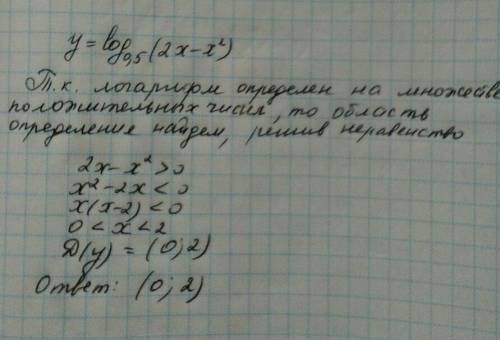 y = log₀,₅(2x-x²)
Т.к. логарифм определен на множестве
положительных чисел, то область
определение найдем, решив неравенство
2x-x²>0
x²-2x<0
x(x-2)<0
0<x<2
D(y) = (0; 2)
Ответ: (0; 2)